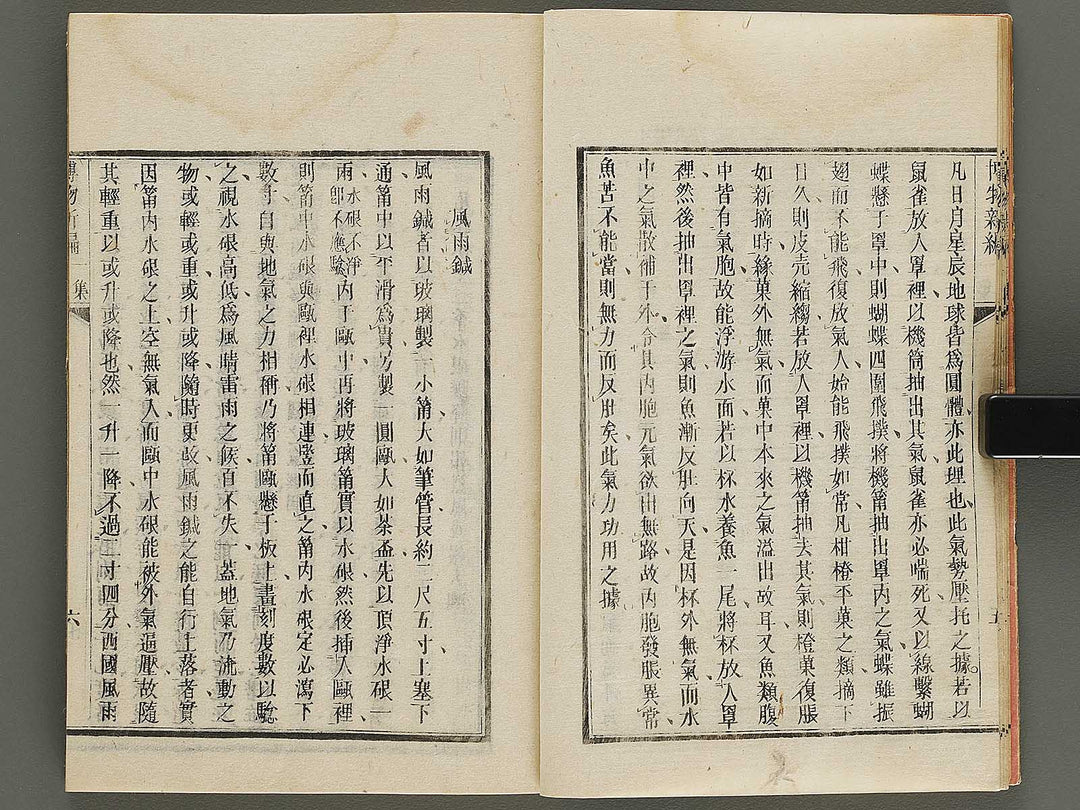 博物新編
凡日月星辰地球皆爲圓體亦此理也此氣勢壓托之據若以
鼠雀放入罩裡以機筒抽出其氣鼠雀亦必喘死又以線繫蝴
蝶懸于罩中則蝴蝶四圍飛撲將機筩抽出罩內之氣蝶雖振
翅而不能飛復放氣入始能飛撲如常凡柑橙平菓之類摘下
日久則皮壳縮縐若放入罩裡以機筩抽去其氣則橙菓復脹
如新摘時緣菓外無氣而菓中本來之氣溢出故耳又魚類腹
中皆有氣胞故能淨游水面若以杯水養魚一尾將杯放入罩
裡然後抽出罩裡之氣則魚漸反肚向天是因杯外無氣而水
中之氣散補于外令其內胞元氣欲出無路故內胞發脹異常
魚苦不能當則無力而反肚矣此氣力功用之據
五
風雨鍼
風雨鍼者以玻璃製一小筩大如筆管長約二尺五寸上塞下
通筩中以平滑爲貴乃製一圓甌大如茶盃先以頂淨水硍一
雨水硍不淨卽不應驗內于甌中再將玻璃筩實以水硍然後插入甌裡
則筩中水硍與甌裡水硍相連豎而直之筩內水硍定必瀉下
數寸自與地氣之力相稱乃將筩甌懸于板上畫刻度數以驗
之視水硍高低爲風晴雷雨之候百不失一蓋地氣乃流動之
物或輕或重或升或降隨時更改風雨鍼之能自行上落者實
因筩內水硍之上空無氣入而甌中水硍能被外氣逼壓故隨
其輕重以或升或降也然一升一降不過二寸四分西國風雨
博物新編 一集
六